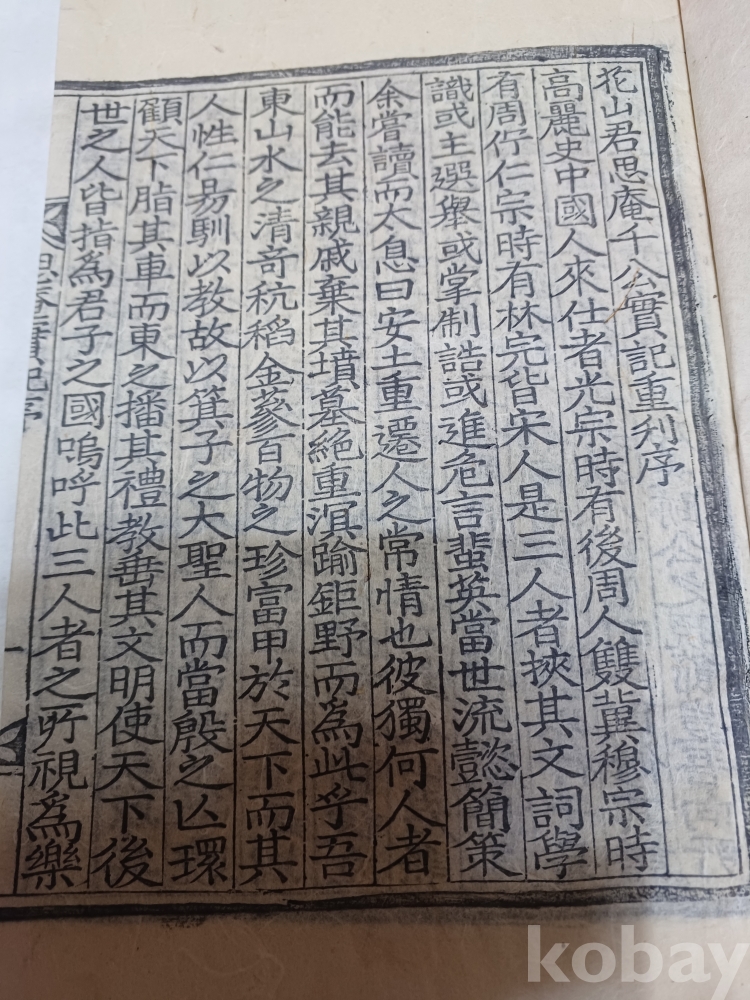 花山君思庵千公實記重刋序
高麗史中國人來仕者光宗時有後周人雙冀穆宗時
有周佇仁宗時有林完皆宋人是三人者挾其文詞學
識或主選舉或掌制誥或進危言蜚英當世流懿簡策
余嘗讀而太息曰安土重遷人之常情也彼獨何人者
而能去其親戚棄其墳墓絶重溟踰鉅野而為此乎吾
東山水之清奇秔稻金蔘百物之珍富甲於天下而其
人性仁易馴以教故以箕子之大聖人而當殷之亾環
顧天下脂其車而東之播其禮教垂其文明使天下後
世之人皆指為君子之國嗚呼此三人者之所視為樂
思庵實記序
一
kobay